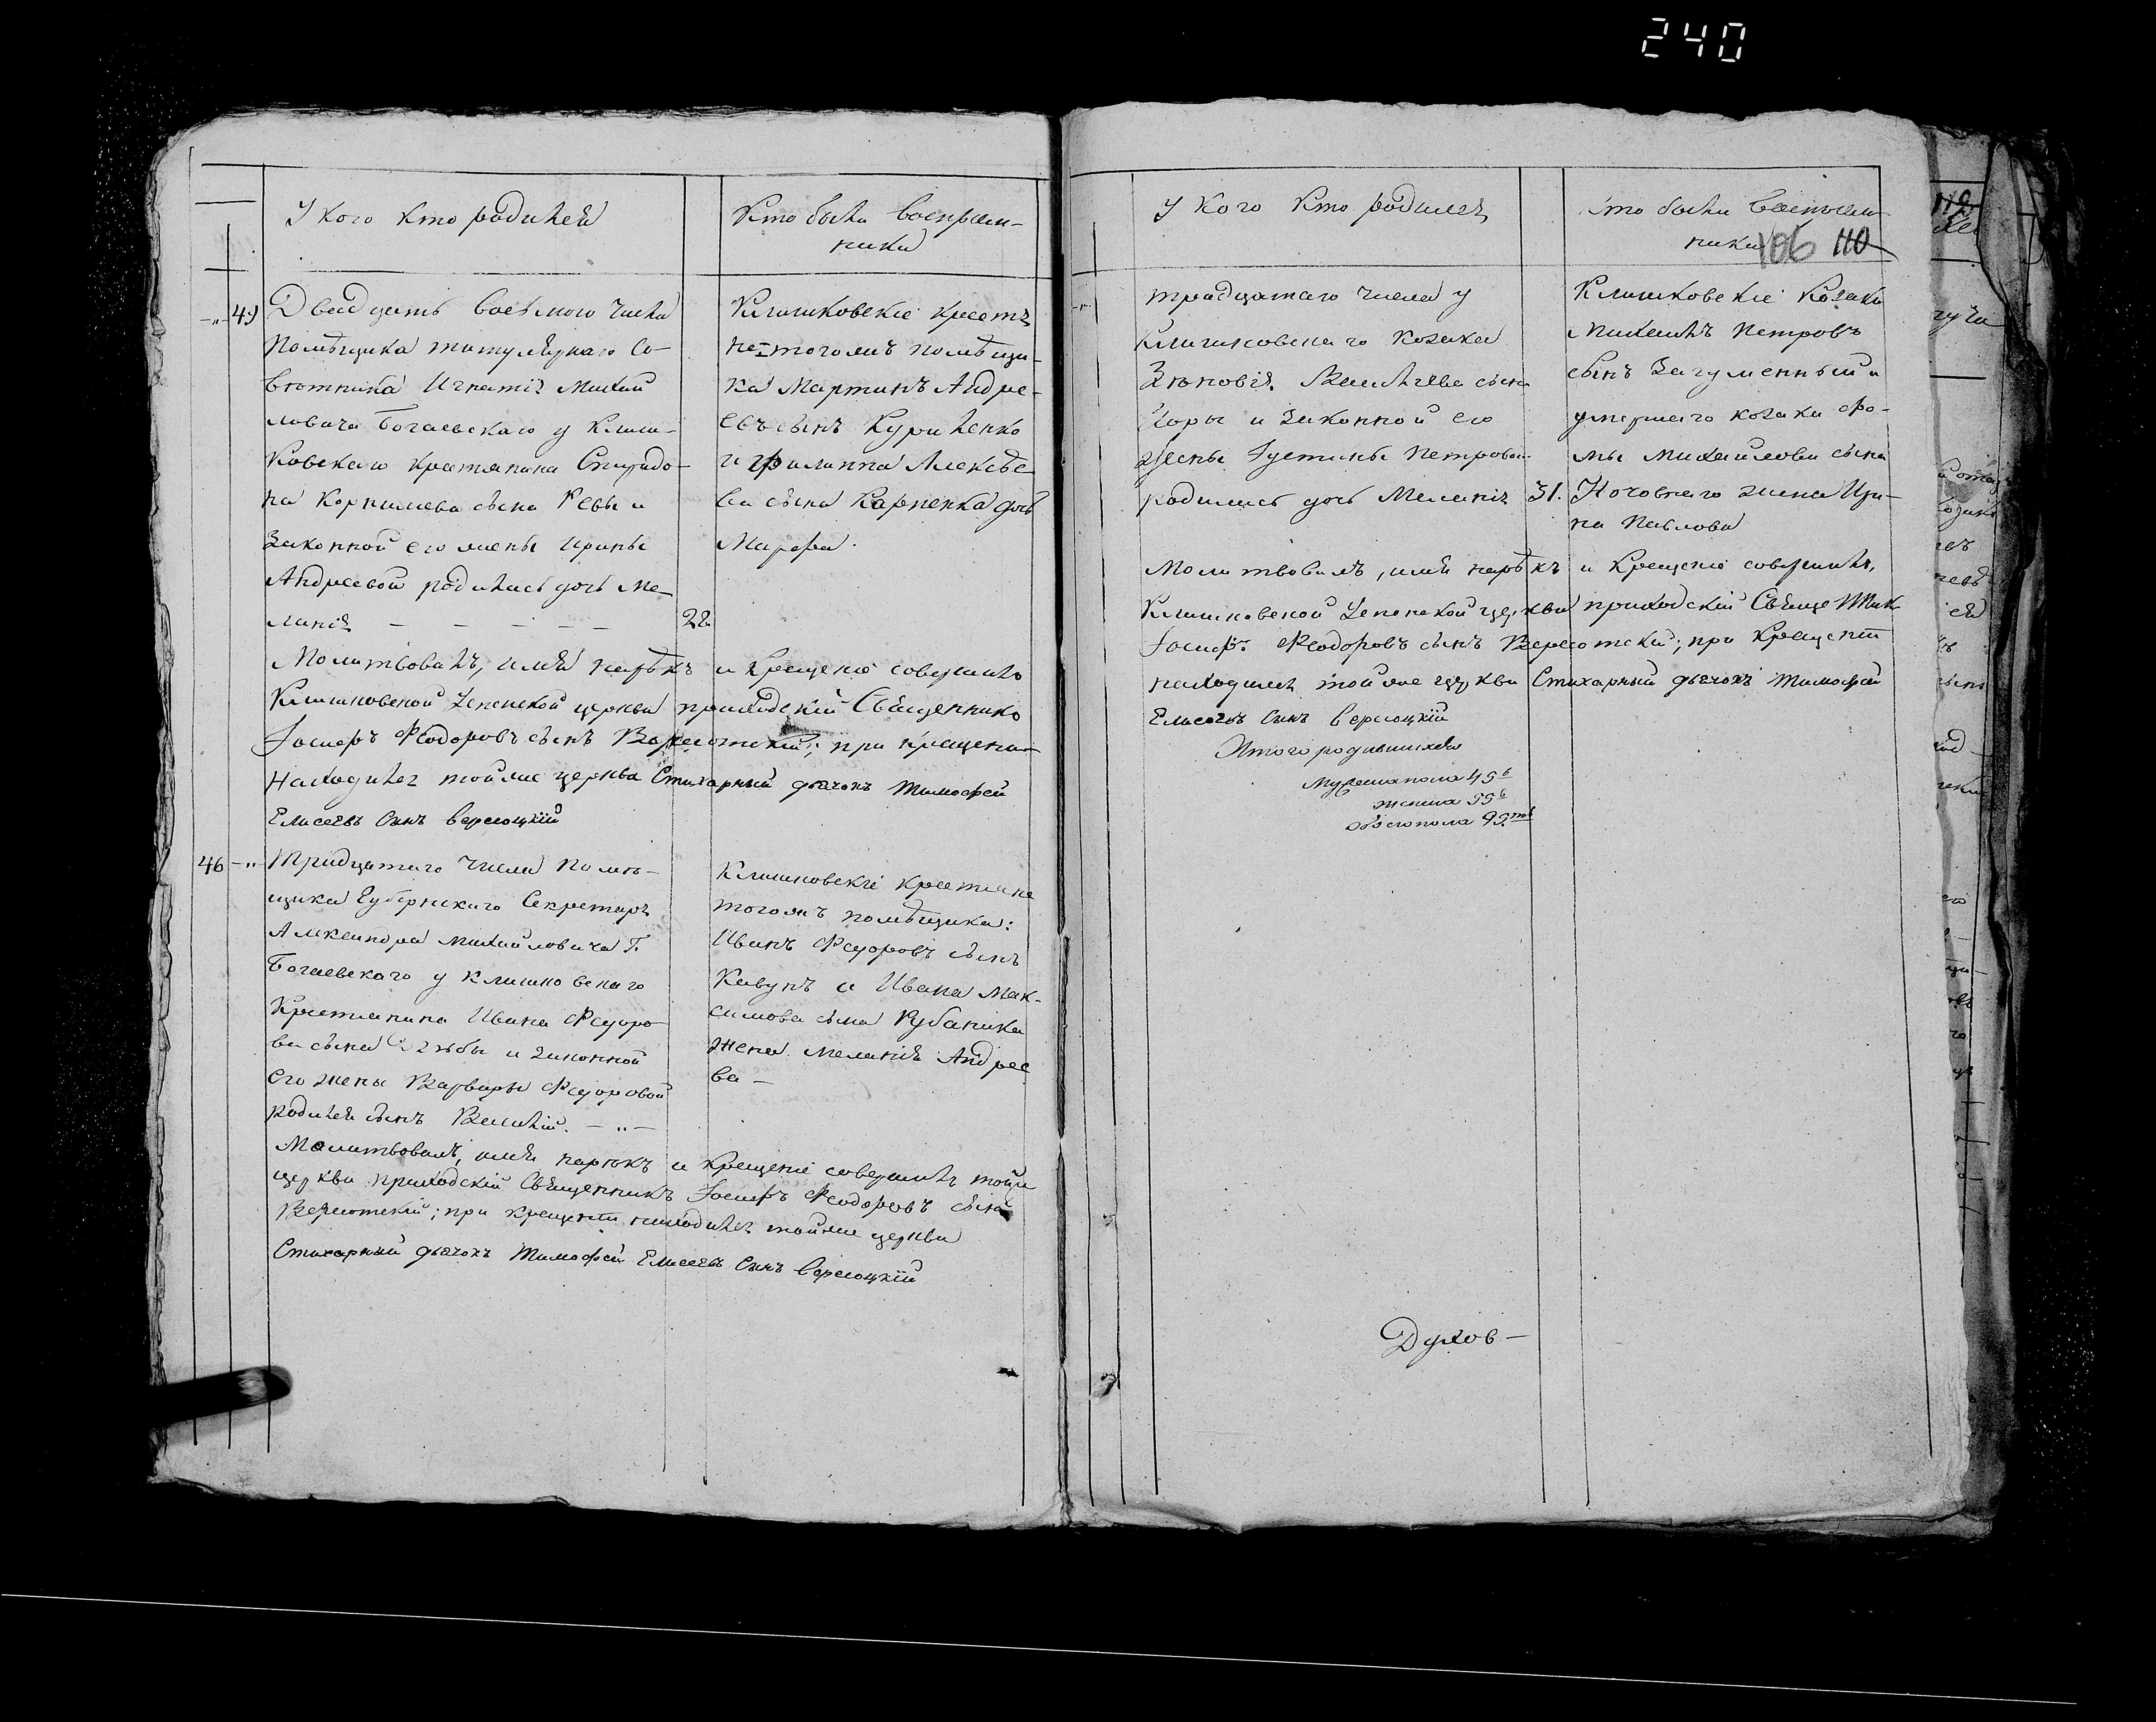 240
У кого кто родился
Кто были восприем-
ники
49 Двадцять восьмого числа
Помѣщика титулярнаго Со-
вѣтника Игнатія Михай
ловича Богаевскаго у Клиш-
ковскаго крестянина Спиридо-
на Корнилиева сына Ревы и
Законной его жены Ирины
Андреевой родилась дочь Ме-
ланія — — — — — 28.
Клишковскіе крестя
не тогожъ помѣщи-
ка Мартинъ Андре-
евъ сынъ Куриленко
и Филиппа Алексѣе
ва сына Карпенка дочь
Марфа.
Молитвовалъ, имя нарѣкъ и крещеніе совершилъ
Клишковской Успенской церкви приходскій Священникъ
Іосифъ Феодоровъ сынъ Вересотскій; при крещеніи
находился тойже церкви Стихарный дьячокъ Тимофей
Елисеевъ Сынъ Вересоцкій
46 Тридцатаго числа помѣ-
щика Губернскаго Секретаря
Александра Михайловича Г.
Богаевскаго у клишковскаго
Крестянина Ивана Федоро-
ва сына и законной
его жены Варвары Федоровой
родился сынъ Василій. — „ —
Клишковскіе крестяне
тогожъ помѣщика:
Иванъ Федоровъ сынъ
Кавунъ и Ивана Мак-
симова сына Рубаника
жена Меланія Андрее
ва —
Молитвовалъ, имя нарѣкъ и крещеніе совершилъ тойже
церкви приходскій Священникъ Іосифъ Феодоровъ сынъ
Вересотскій; при крещеніи находился тойже церкви
Стихарный дьячокъ Тимофей Елисеевъ Сынъ Вересоцкій
У кого кто родился
Кто были восприем-
ники 106 110
тридцатаго числа у
Клишковскаго козака
Зѣновія Василіева сына
Горы и законной его
жены Іустины Петровой
родилась дочь Меланія 31.
Клишковскіе Козаки
Михаилъ Петровъ
сынъ Загуменный и
умершаго козака Фо-
мы Михайлова сына
Ночовнаго жена Ири-
на Павлова
Молитвовалъ, имя нарѣкъ и крещеніе совершилъ,
Клишковской Успенской церкви приходскій Священник
Іосифъ Феодоровъ сынъ Вересотскій; при крещеніи
находился тойже церкви Стихарный дьячокъ Тимофей
Елисеевъ Сынъ Вересоцкій
Итого родившихся
Мужеска пола 46
женска
обоего пола
Духов —